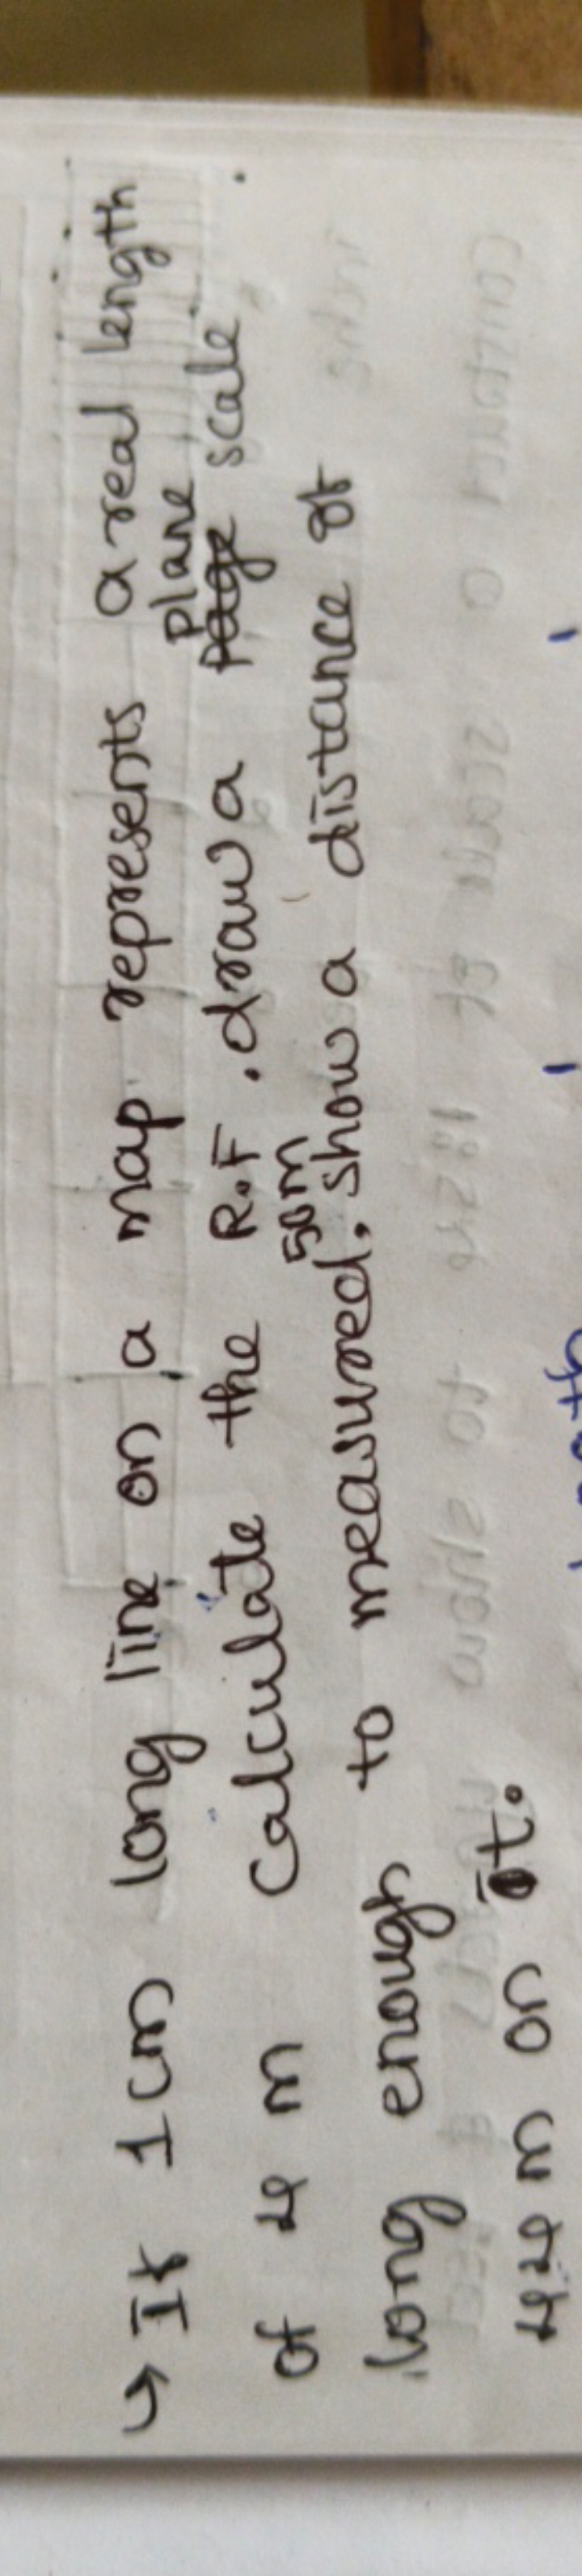 → If 1cm long line on a map represents a real length
of 4 m calculate the R.F . draw a plane scale .
long enough to measured 50m. show a distance of
44 m on it.